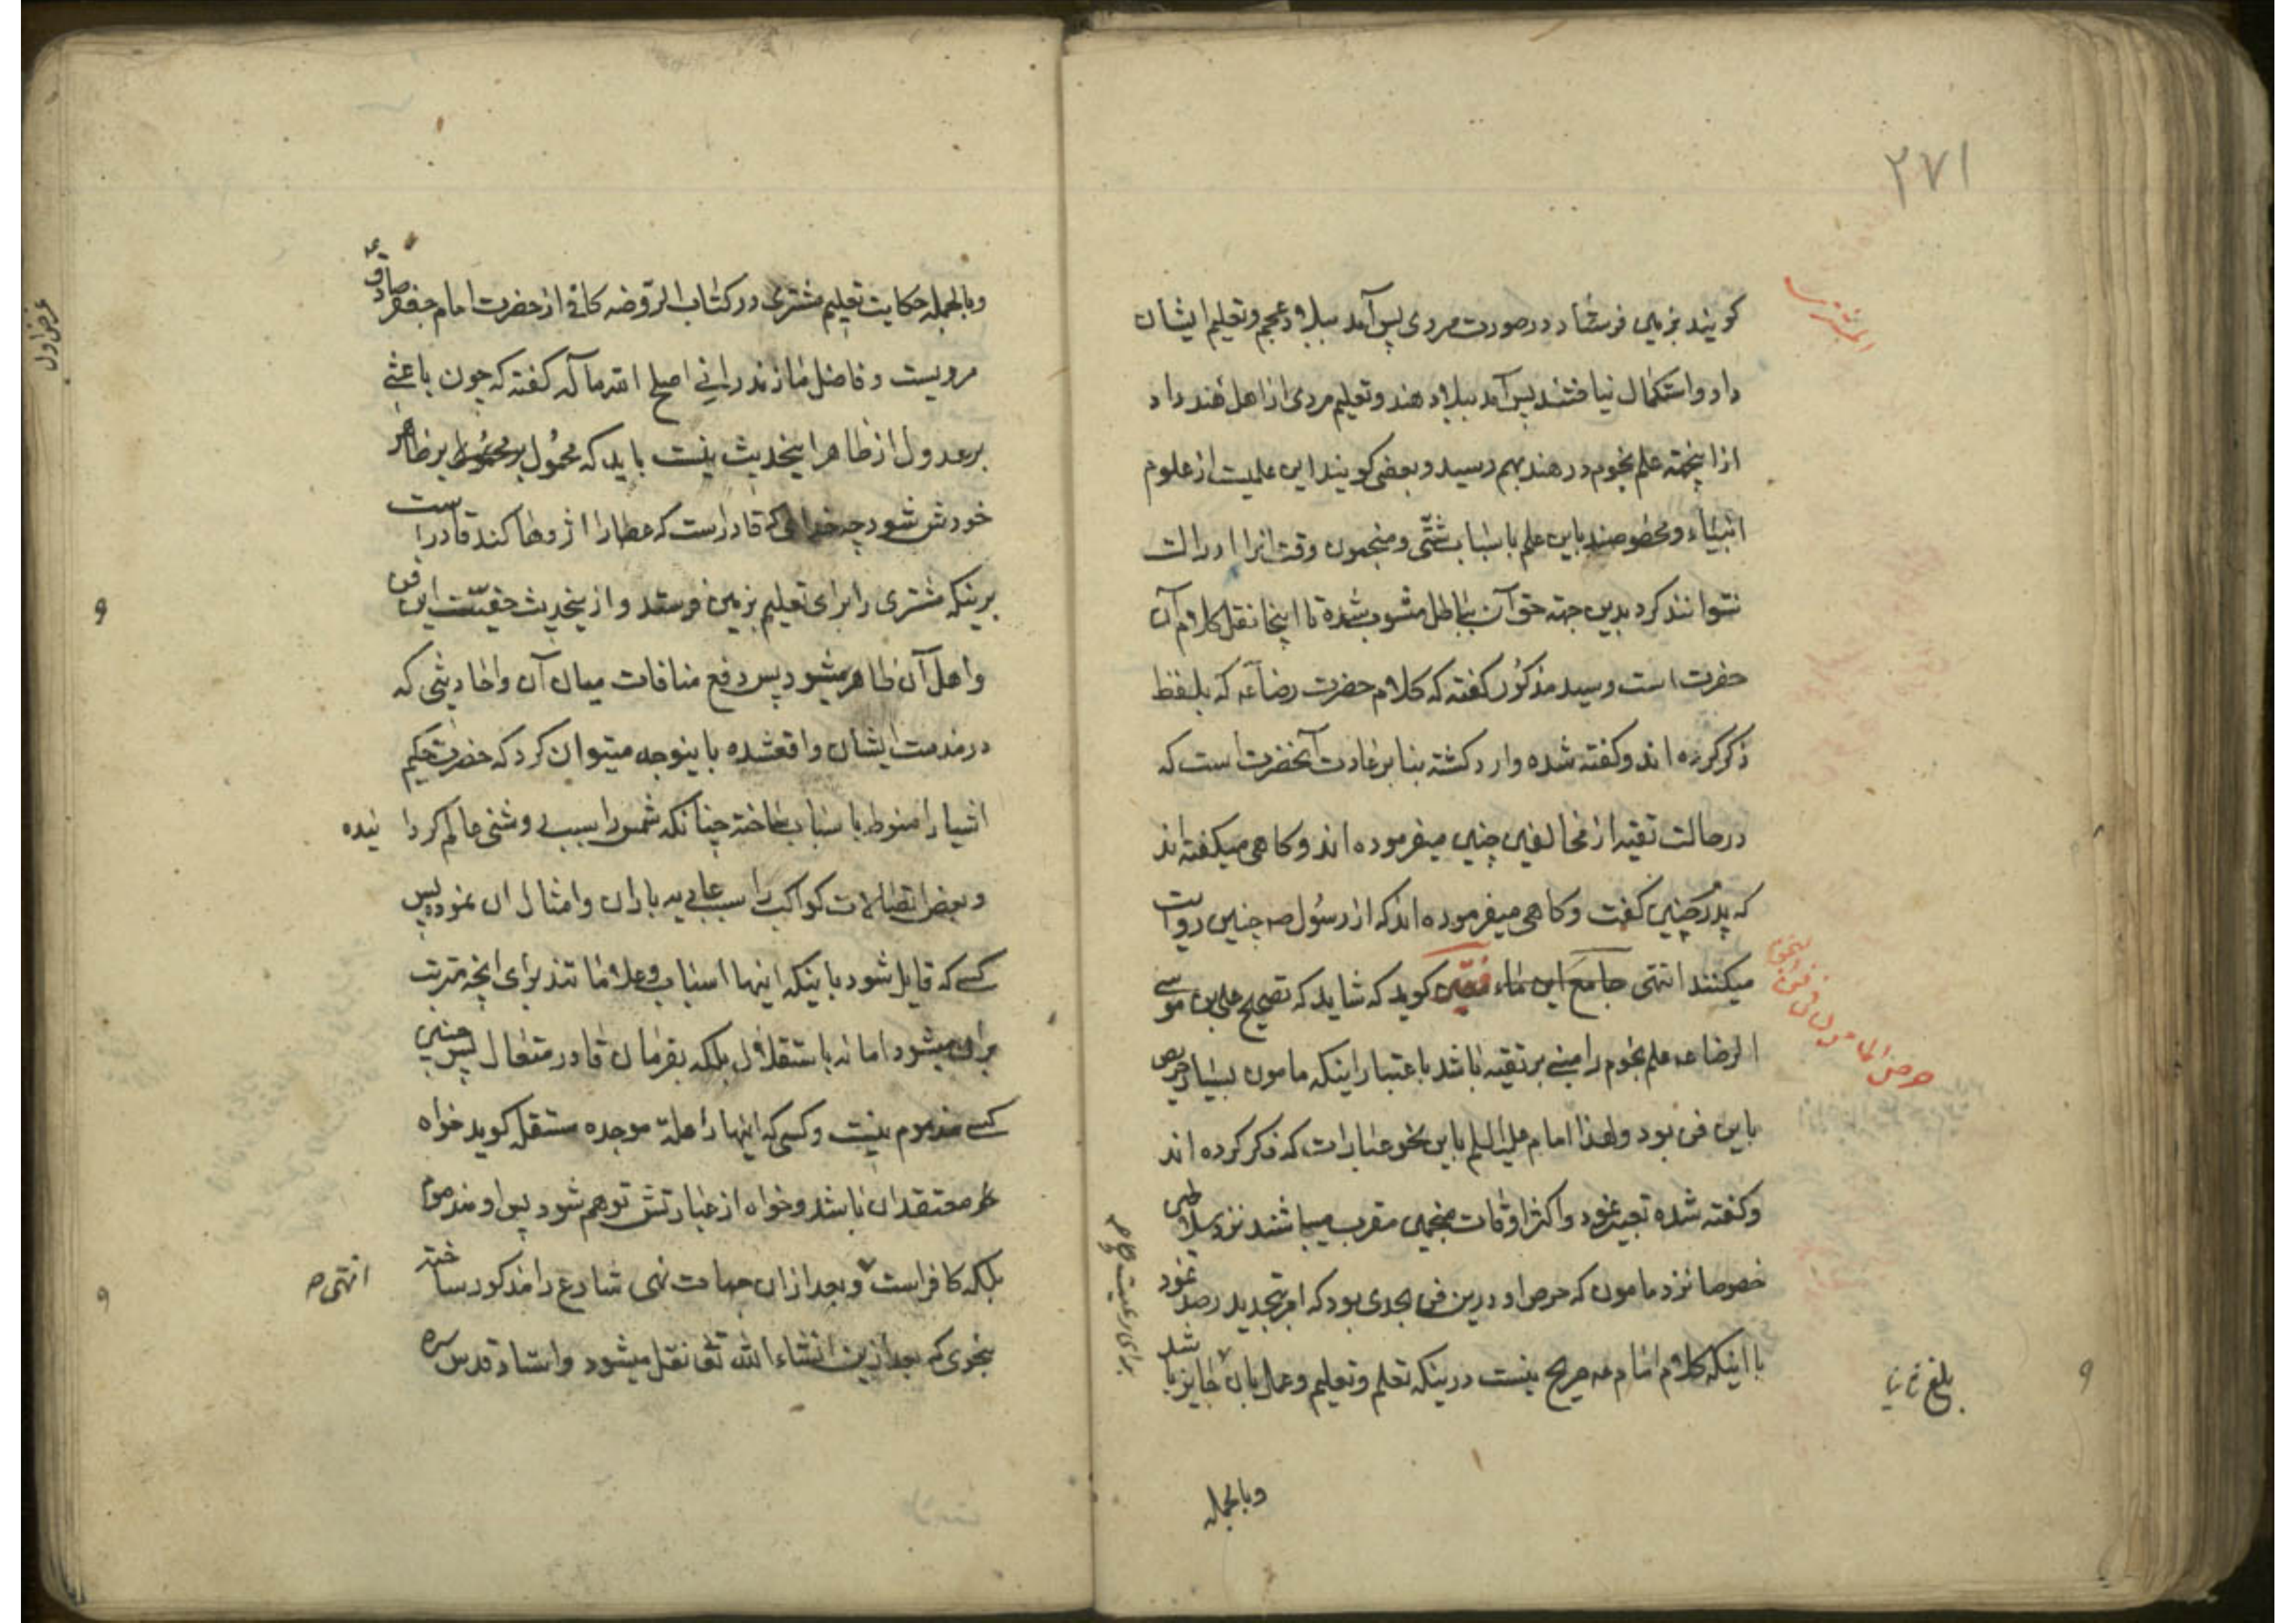 ۲۷۱
المشتری
کویند بزمین فرستاد در صورت مردی پس آمد ببلاد عجم و تعلیم ایشان
داد و استکمال نیافتند پس آمد ببلاد هند و تعلیم مردی از اهل هند داد
ازاینجهته علم نجوم در هند بهم رسید و بعضی کویند این علمیت از علوم
انبیاء و مخصوصند باین علم باسباب شتّی و منجمون وقت انرا ادراک
نتوانند کرد بدین جهته حق آن بباطل مشوب شده تا اینجا نقل کلام آن
حضرت است و سید مذکور کفته که کلام حضرت رضا عه که بلفظ
ذکر کرده اند و کفته شده وارد کشته بنا بر عادت آنحضرت است که
در حالت تقیه از مخالفین چنین میفرموده اند و کاهی میکفته اند
که پدرم چنین کفت و کاهی میفرموده اند که از رسول صه چنین روایت
میکنند انتهی جامع این کویند که شاید که تصحیح علی بن موسی
الرضا عه علم نجوم را مبنی بر تقیه باشد باعتبار اینکه مامون بسیار حریص
حرص المامون فی فن النجوم
باین فن بود و لهذا امام علیه السلم باین نحو عبارات که ذکر کرده اند
و کفته شده تعبیر نمود و اکثر اوقات منجمین مقرب میباشند نزد سلاطین
خصوصا نزد مامون که حرص او درین فن بحدی بود که امر بتجدید رصد نمود
با اینکه کلام امام عه صریح نیست درینکه تعلم و تعلیم و عمل بان جایز باشد
بلغ
برای رعیت
وبالجمله
وبالجمله حکایت تعلیم مشتری در کتاب الروضه کافی از حضرت امام جعفر صادق عه
مرویست و فاضل مازندرانی اصلح الله مآله کفته که چون باعثی
بر عدول از ظاهر اینحدیث نیست باید که محمول بر ظاهر
خودش شود چه خدائی که قادرست که عصا را اژدها کند قادر است
برینکه مشتری را برای تعلیم بزمین فرستد و از ینحدیث حقیّت این فن
و اهل آن ظاهر میشود پس دفع منافات میان آن و احادیثی که
در مذمت ایشان واقعشده باینوجه میتوان کرد که حضرت حکیم
اشیا را منوط باسباب ساخته چنانکه شمس را سبب روشنی عالم کردا نیده
و بعض اتصالات کواکب را سبب عادیه باران و امثال ان نموده پس
کسی که قایل شود باینکه اینها اسباب و علاماتند برای انچه مترتب
بران میشود اما نه باستقلال بلکه بفرمان قادر متعال پس چنین
کسی مذموم نیست و کسی که اینها را علة موجده مستقله کوید خواه
معتقد ان باشد و خواه از عبارتش توهم شود پس او مذموم
بلکه کافر است و بعد از ان جهات نهی شارع را مذکور ساخته
انتهی صه
بنحوی که بعد ازین انشاء الله تع نقل میشود و استاد قدس سره
غرض اول